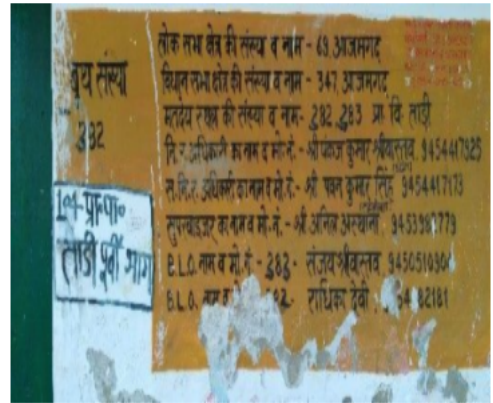 बुथ संख्या
382
1-प्रा०पा०
ताडी पूर्वी भाग
लोक सभा क्षेत्र की संख्या व नाम - 69 आजमगढ
विधान सभा क्षेत्र की संख्या व नाम - 347 आजमगढ
मतदेय स्थल की संख्या व नाम - 282 283 प्रा. वि. ताडी
नि. र. अधिकारी का नाम व मो. नं. - श्री पंकज कुमार श्रीवास्तव 9454417925
स. नि. र. अधिकारी का नाम व मो. नं. - श्री पवन कुमार सिंह 9454417173
सुपरवाइजर का नाम व मो. नं. - श्री अनिल अस्थाना
B.L.O. नाम व मो. नं. - 283 - संजय श्रीवास्तव
B.L.O. नाम व राधिका देवी 82181